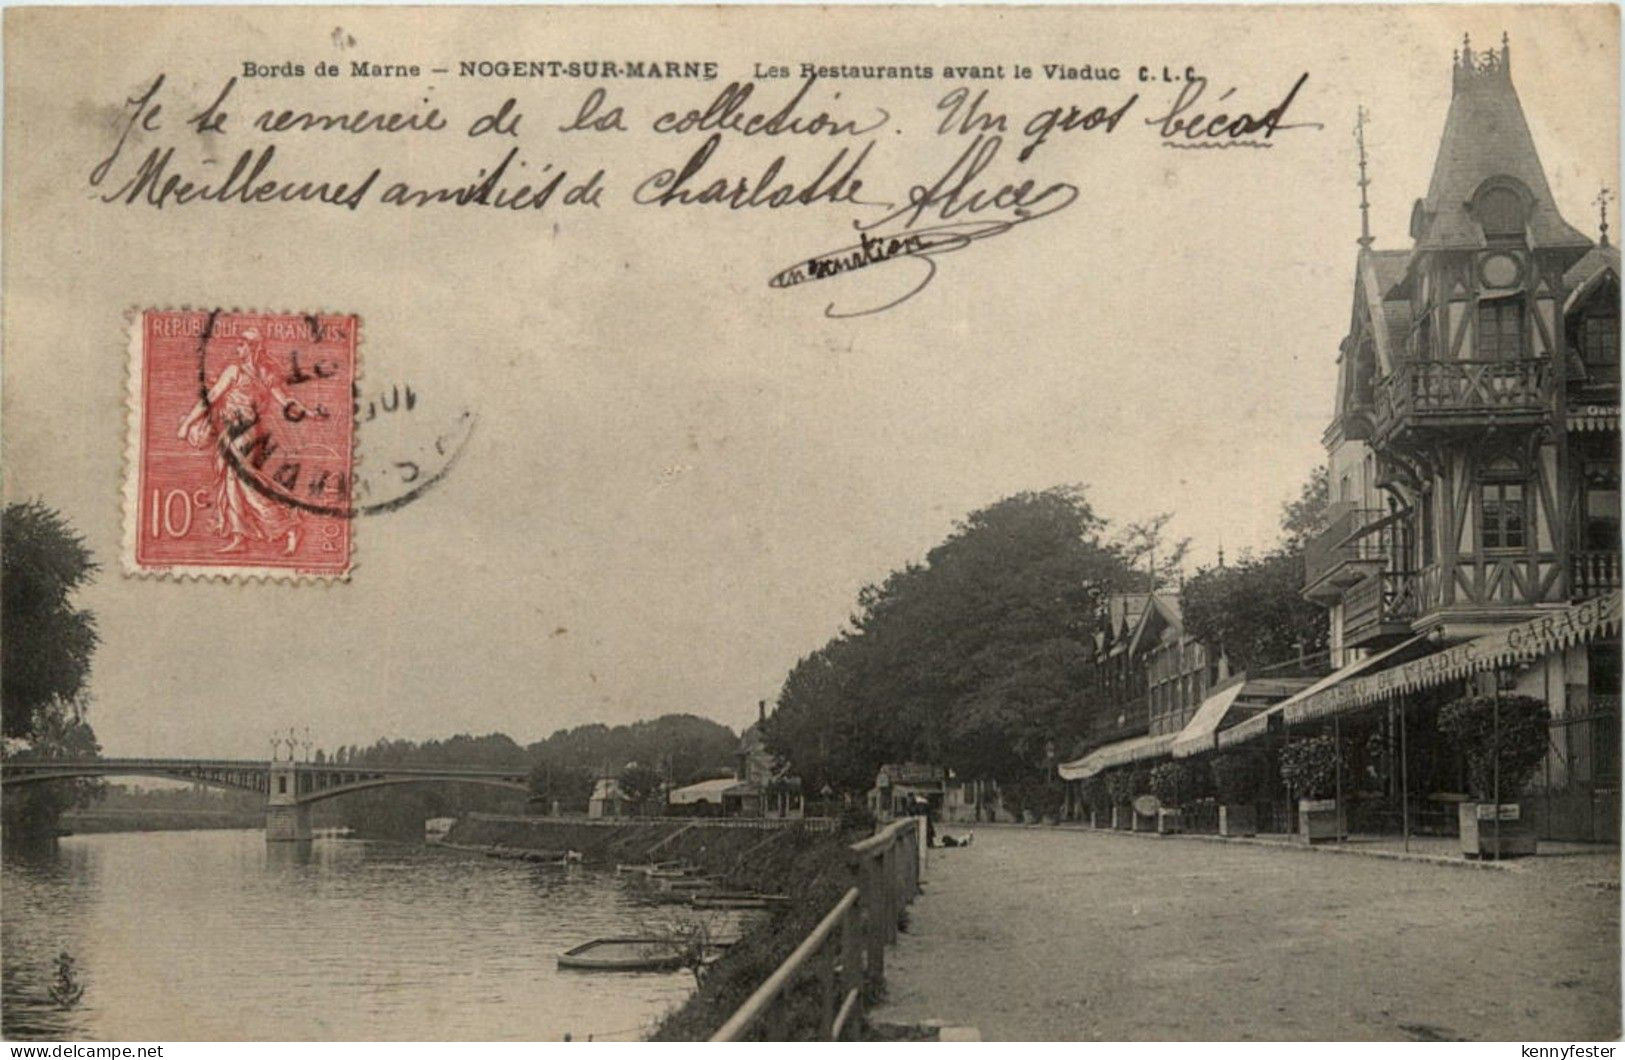 Bords de Marne – NOGENT-SUR-MARNE Les Restaurants avant le Viaduc C.L.C.
Je te remercie de la collection. Un gros bécot
Meilleures amitiés de Charlotte Alice
en
REPUBLIQUE FRANÇAISE
10c
MARNE
GARAGE
VIADUC
kennyfester
Delcampe.net